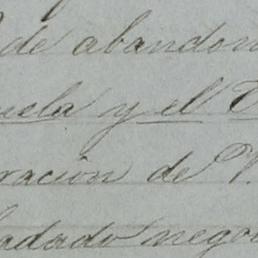 de abandon
uela y el
ración de V.
ladado nego